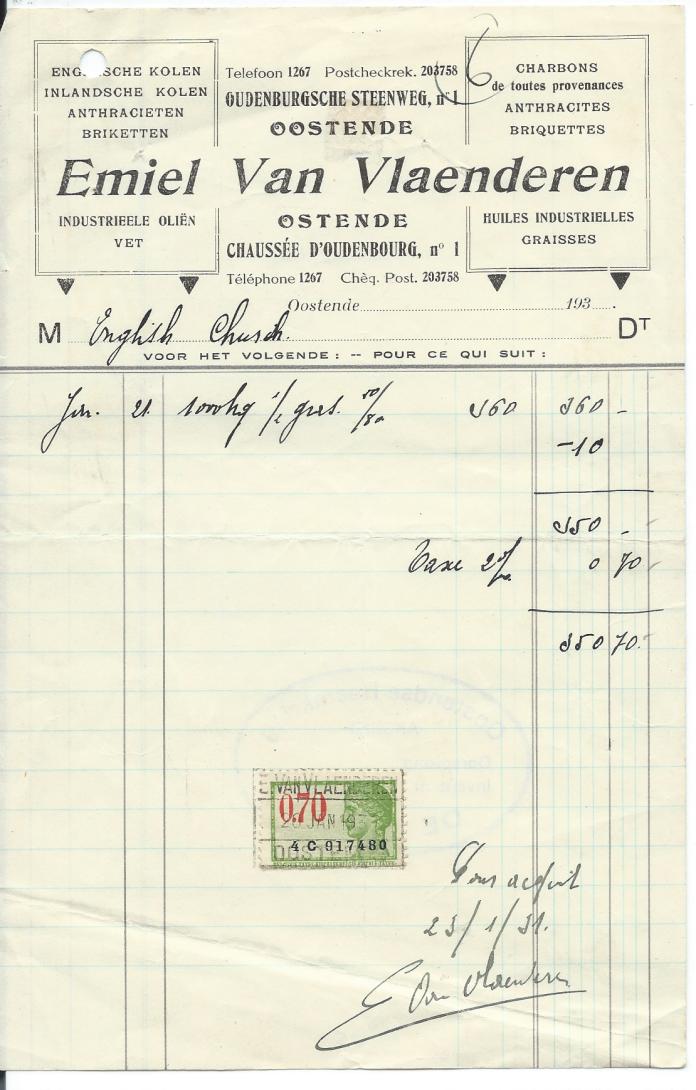 6
ENGELSCHE KOLEN
INLANDSCHE KOLEN
ANTHRACIETEN
BRIKETTEN
Telefoon 1267 Postcheckrek. 203758
OUDENBURGSCHE STEENWEG, nr 1
OOSTENDE
CHARBONS
de toutes provenances
ANTHRACITES
BRIQUETTES
Emiel Van Vlaenderen
INDUSTRIEELE OLIËN
VET
OSTENDE
CHAUSSÉE D'OUDENBOURG, no 1
Téléphone 1267 Chèq. Post. 203758
HUILES INDUSTRIELLES
GRAISSES
Oostende 193 .
M English Church. DT
VOOR HET VOLGENDE : -- POUR CE QUI SUIT :
Jan. 21. 1000kg 1/2 gras. 50/80 360 360 -
-10
350 -
Taxe 2‰ 0 70
350 70
E. VAN VLAENDEREN
0.70
JAN 193
4 C 917480
OOSTENDE
Pour acquit
23/1/31.
E Van Vlaenderen